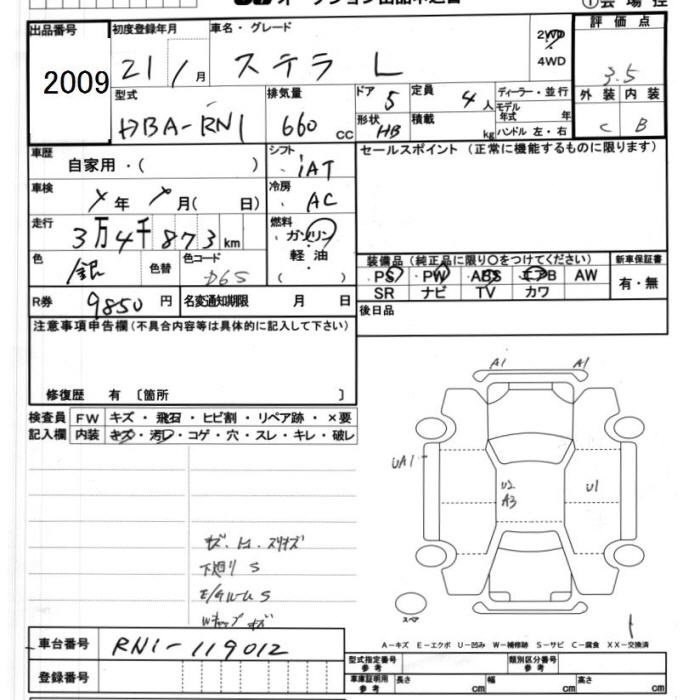 オークション出品申込書
①会場控
出品番号 初度登録年月 車名・グレード 2WD 評価点
2009 21/1月 ステラ L 4WD 3.5
型式 排気量 ドア 5 定員 4人 ディーラー・並行 外装 内装
DBA-RN1 660 CC 形状 HB 積載 kg モデル年式 年 C B
ハンドル 左・右
車歴 自家用・( ) シフト iAT セールスポイント(正常に機能するものに限ります)
車検 年 月( 日) 冷房 AC
走行 3万4千873km 燃料 ガソリン
軽油
( )
色 銀 色替 色コード D6S 装備品(純正品に限り○をつけてください) 新車保証書
PS PW ABS エアB AW 有・無
SR ナビ TV カワ
R券 9850円 名変通知期限 月 日 後日品
注意事項申告欄(不具合内容等は具体的に記入して下さい)
修復歴 有 〔箇所 〕
検査員 FW キズ・飛石・ヒビ割・リペア跡・×要
記入欄 内装 キズ・汚レ・コゲ・穴・スレ・キレ・破レ
A1 A1
UA1
U2 U1
A3
スリキズ
下廻り S
E/Gルーム S
Wキャップ キズ
スペア
A-キズ E-エクボ U-凹み W-補修跡 S-サビ C-腐食 XX-交換済
車台番号 RN1-119012
型式指定番号 参考 類別区分番号 参考
登録番号 車庫証明用 参考 長さ cm 幅 cm 高さ cm